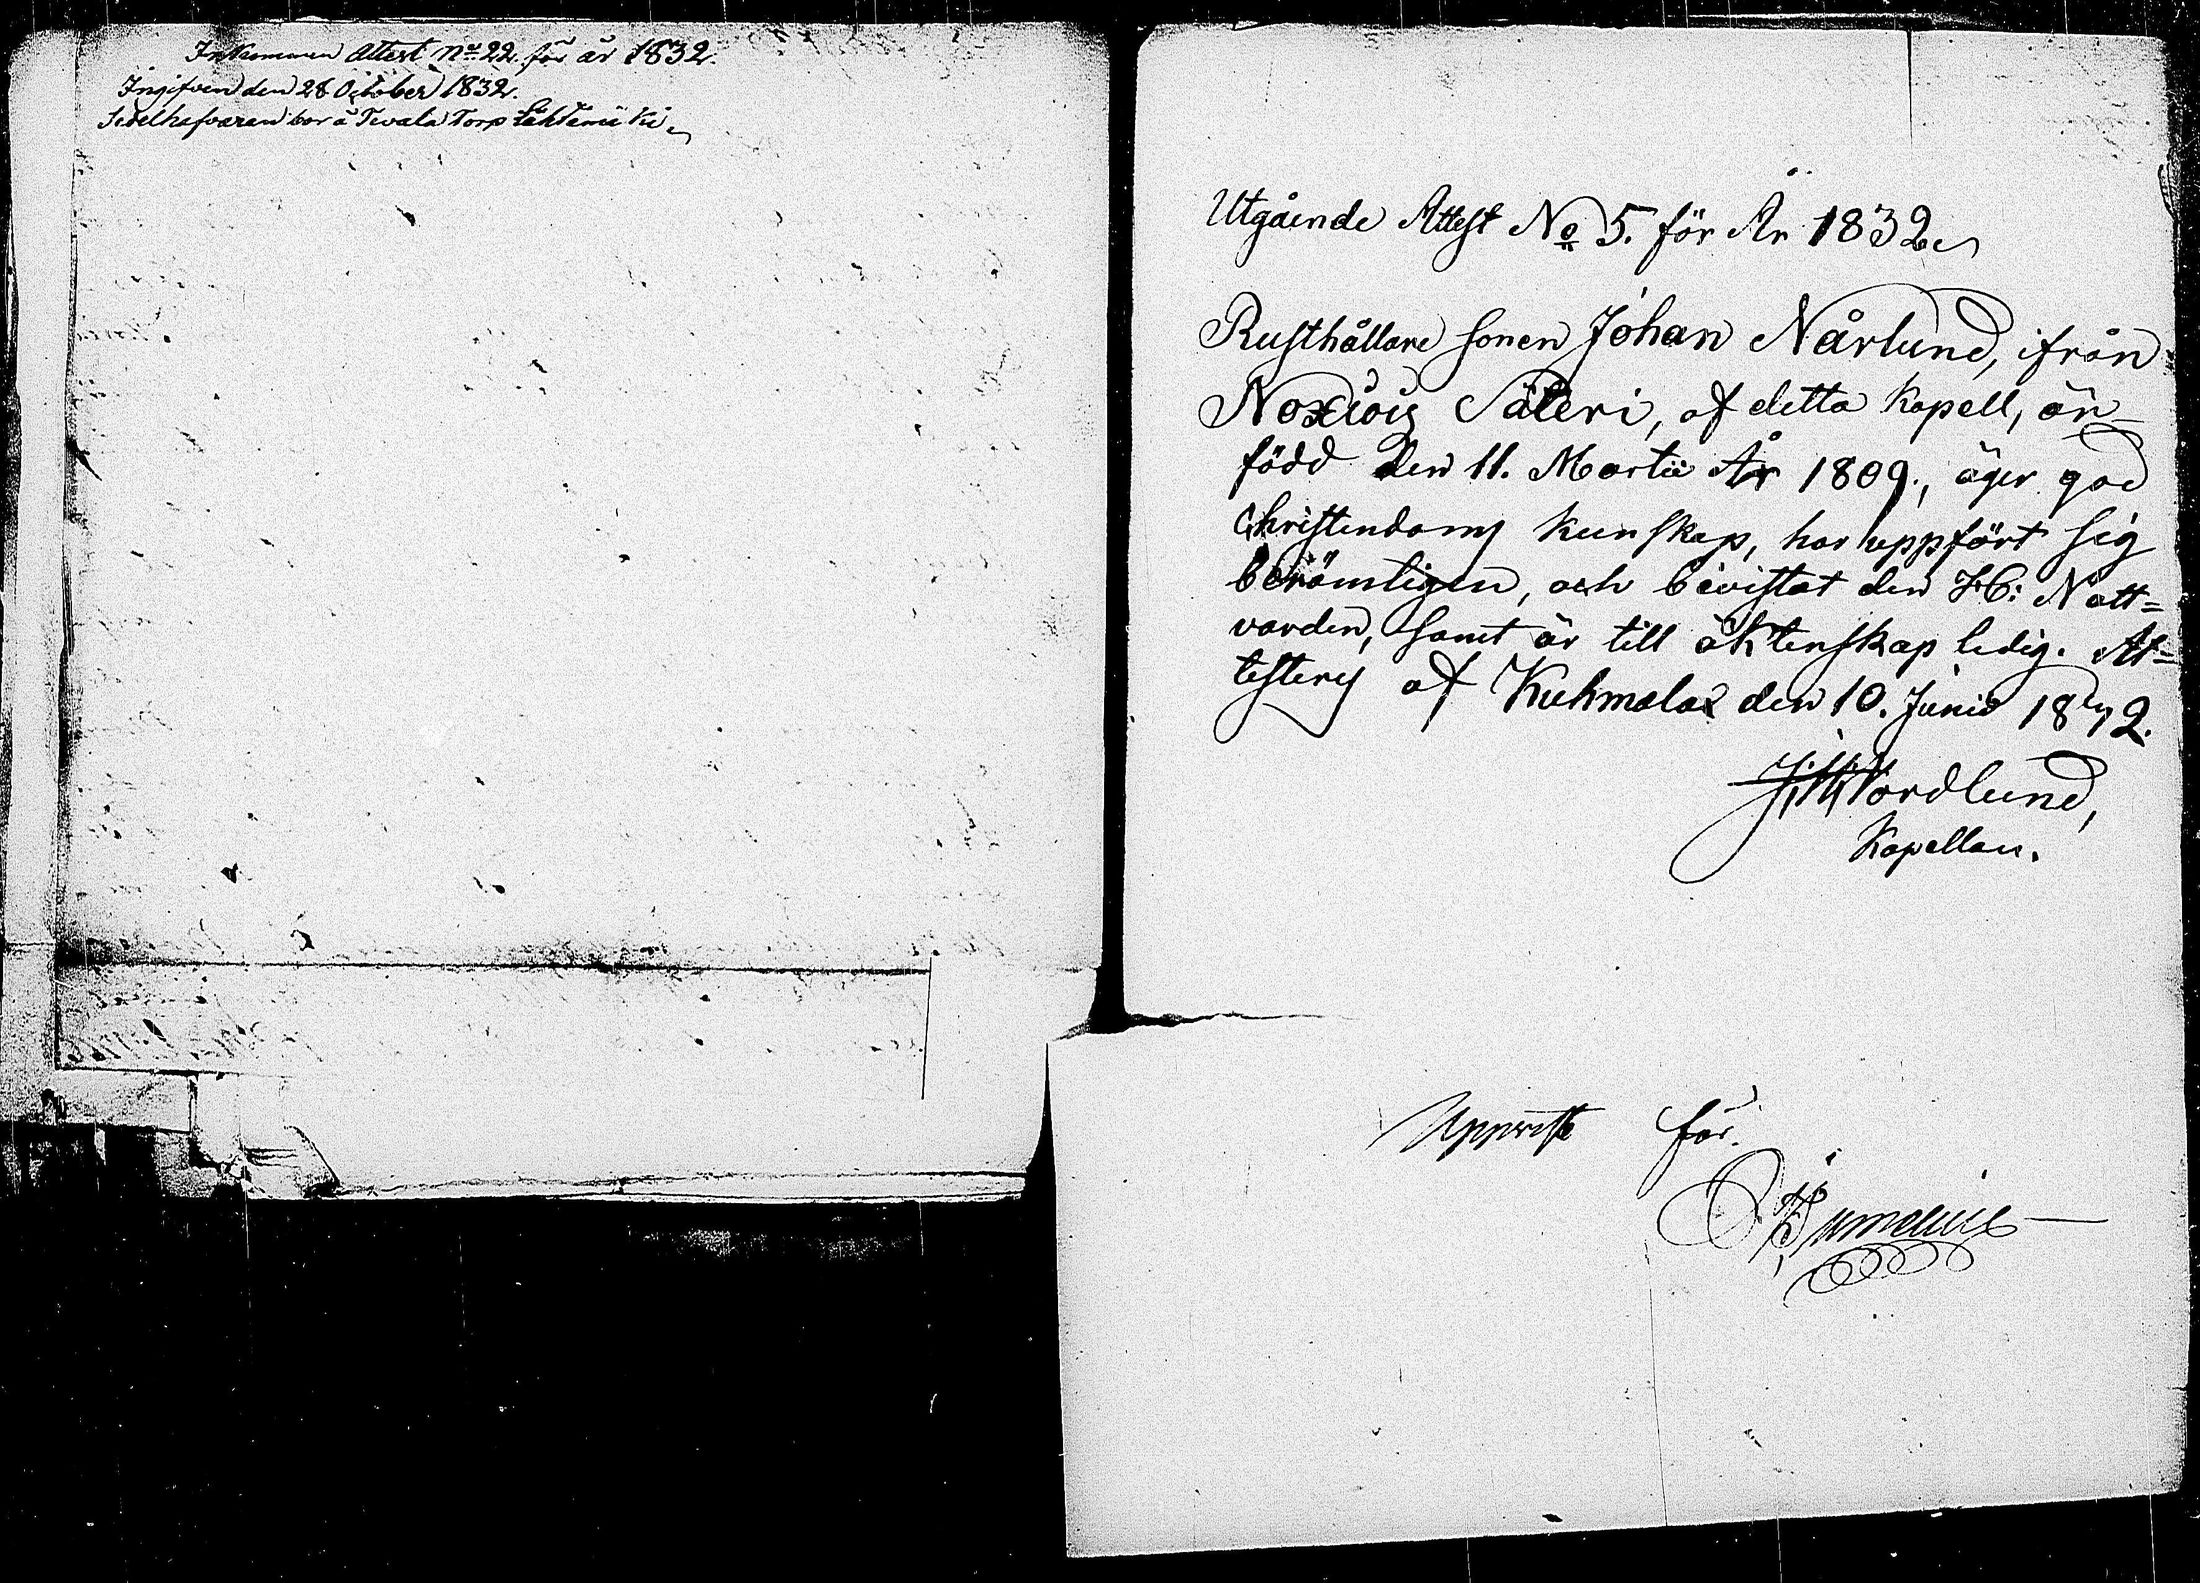 Inkommen Attest No 22. för år 1832.
Ingifven den 28 October 1832.
Sedelhafvaren bor å Tevala Torp Lahtemäki
Utgående Attest No 5. för År 1832
Rusthållare sonen Johan Nårlund, ifrån
Säteri, af detta Kapell, är
född den 11. Martii År 1809., äger god
Christendoms kunskap, har uppfört sig
berömligen, och bevistat den H: Natt=
varden, samt är till äktenskap ledig. At=
testeras af Kuhmalax den 10. Junii 1832.
J. M. Nordlund,
Kapellan.
Uppvist för.